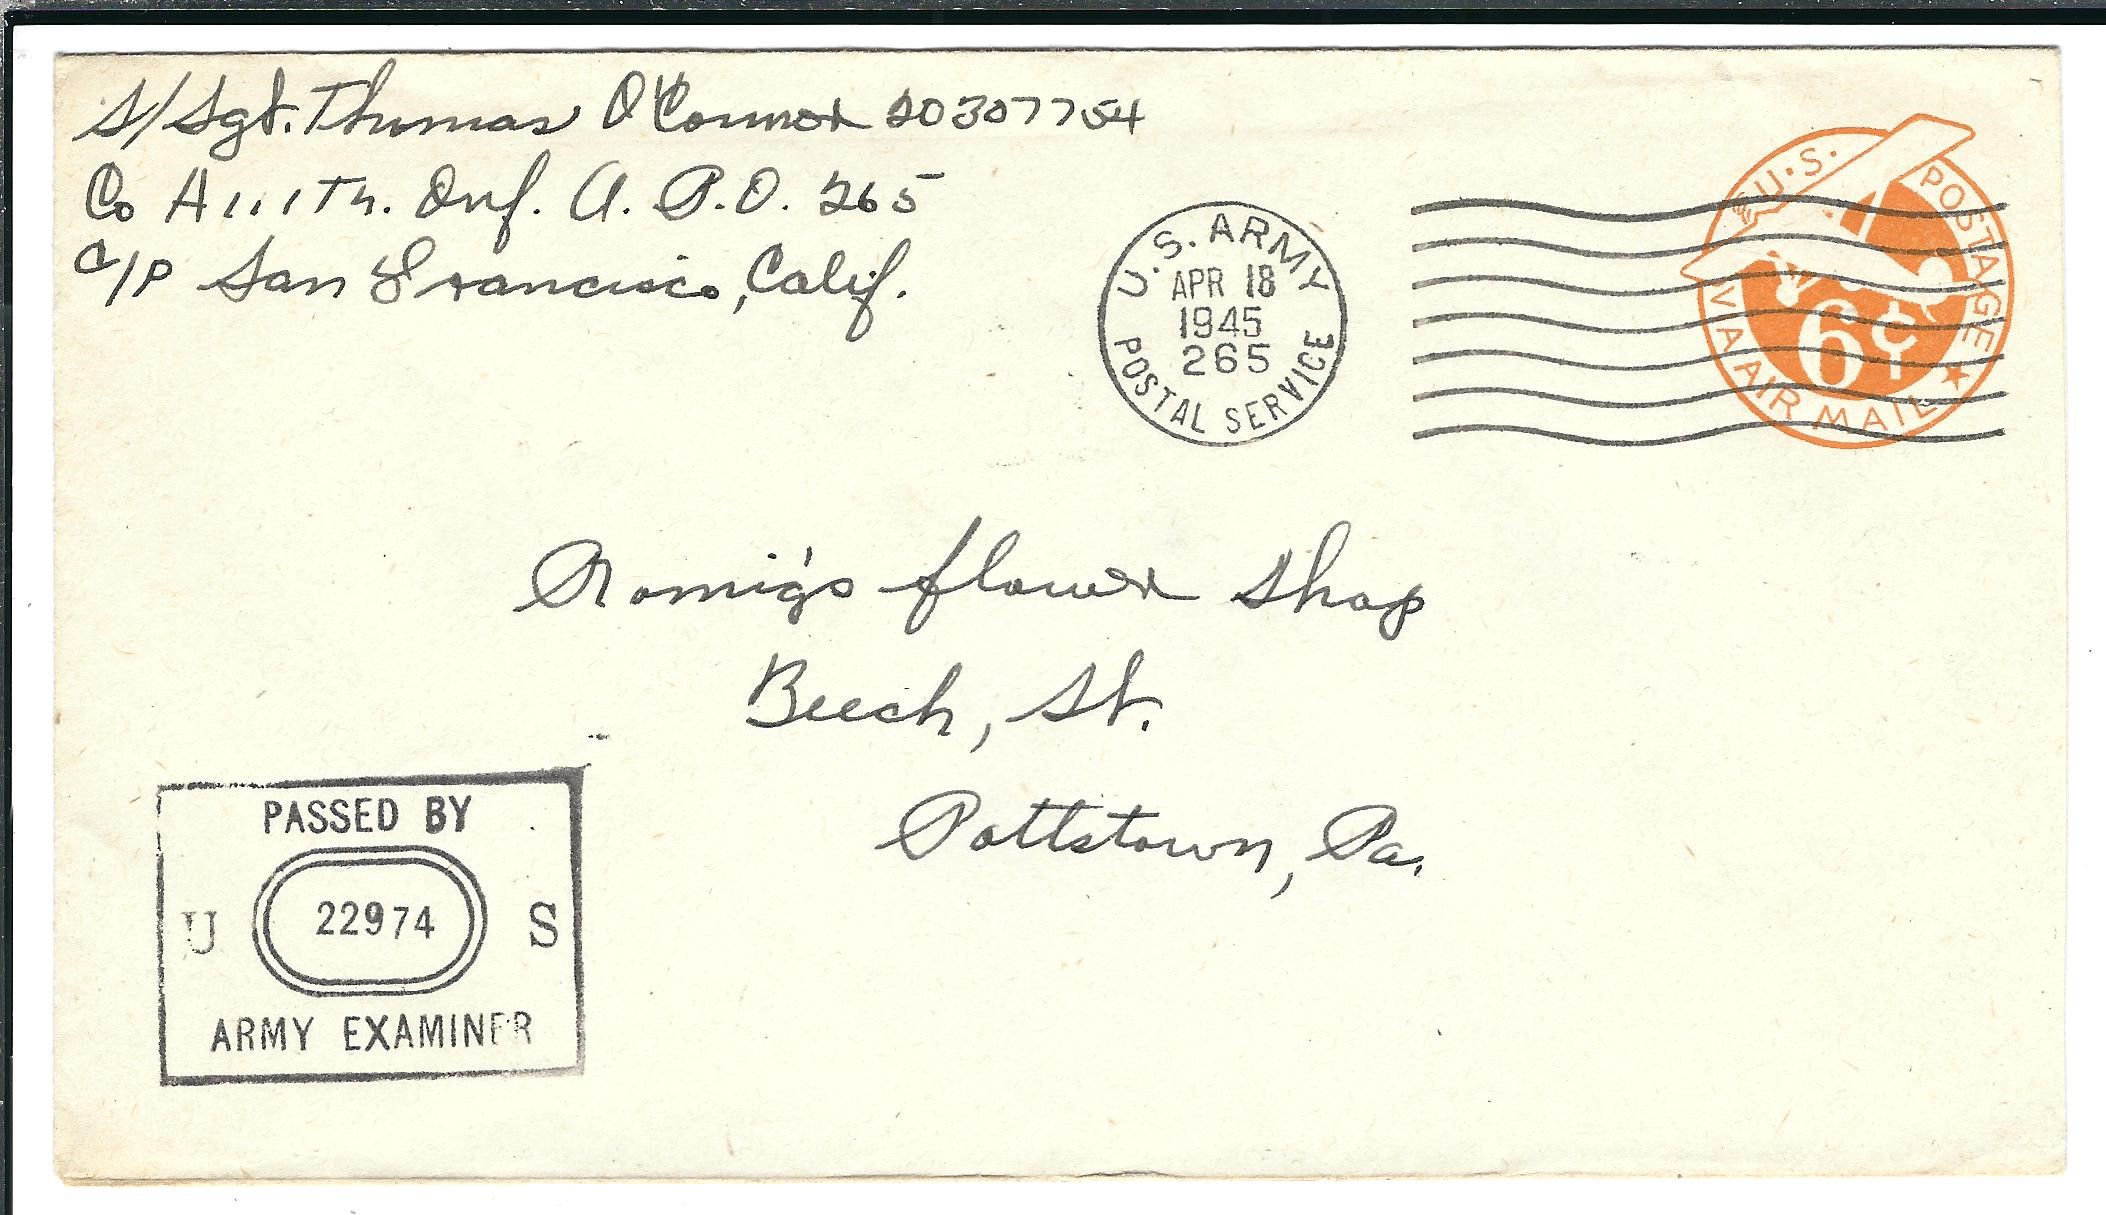 S/Sgt. Thomas O'Connor 20307754
Co A 111Th. Inf. A. P.O. 265
c/p San Francisco, Calif.
U.S. ARMY
APR 18
1945
265
POSTAL SERVICE
U.S. POSTAGE
VIA AIR MAIL
6¢
Romig's flower Shop
Beech, St.
Pottstown, Pa.
PASSED BY
U 22974 S
ARMY EXAMINER